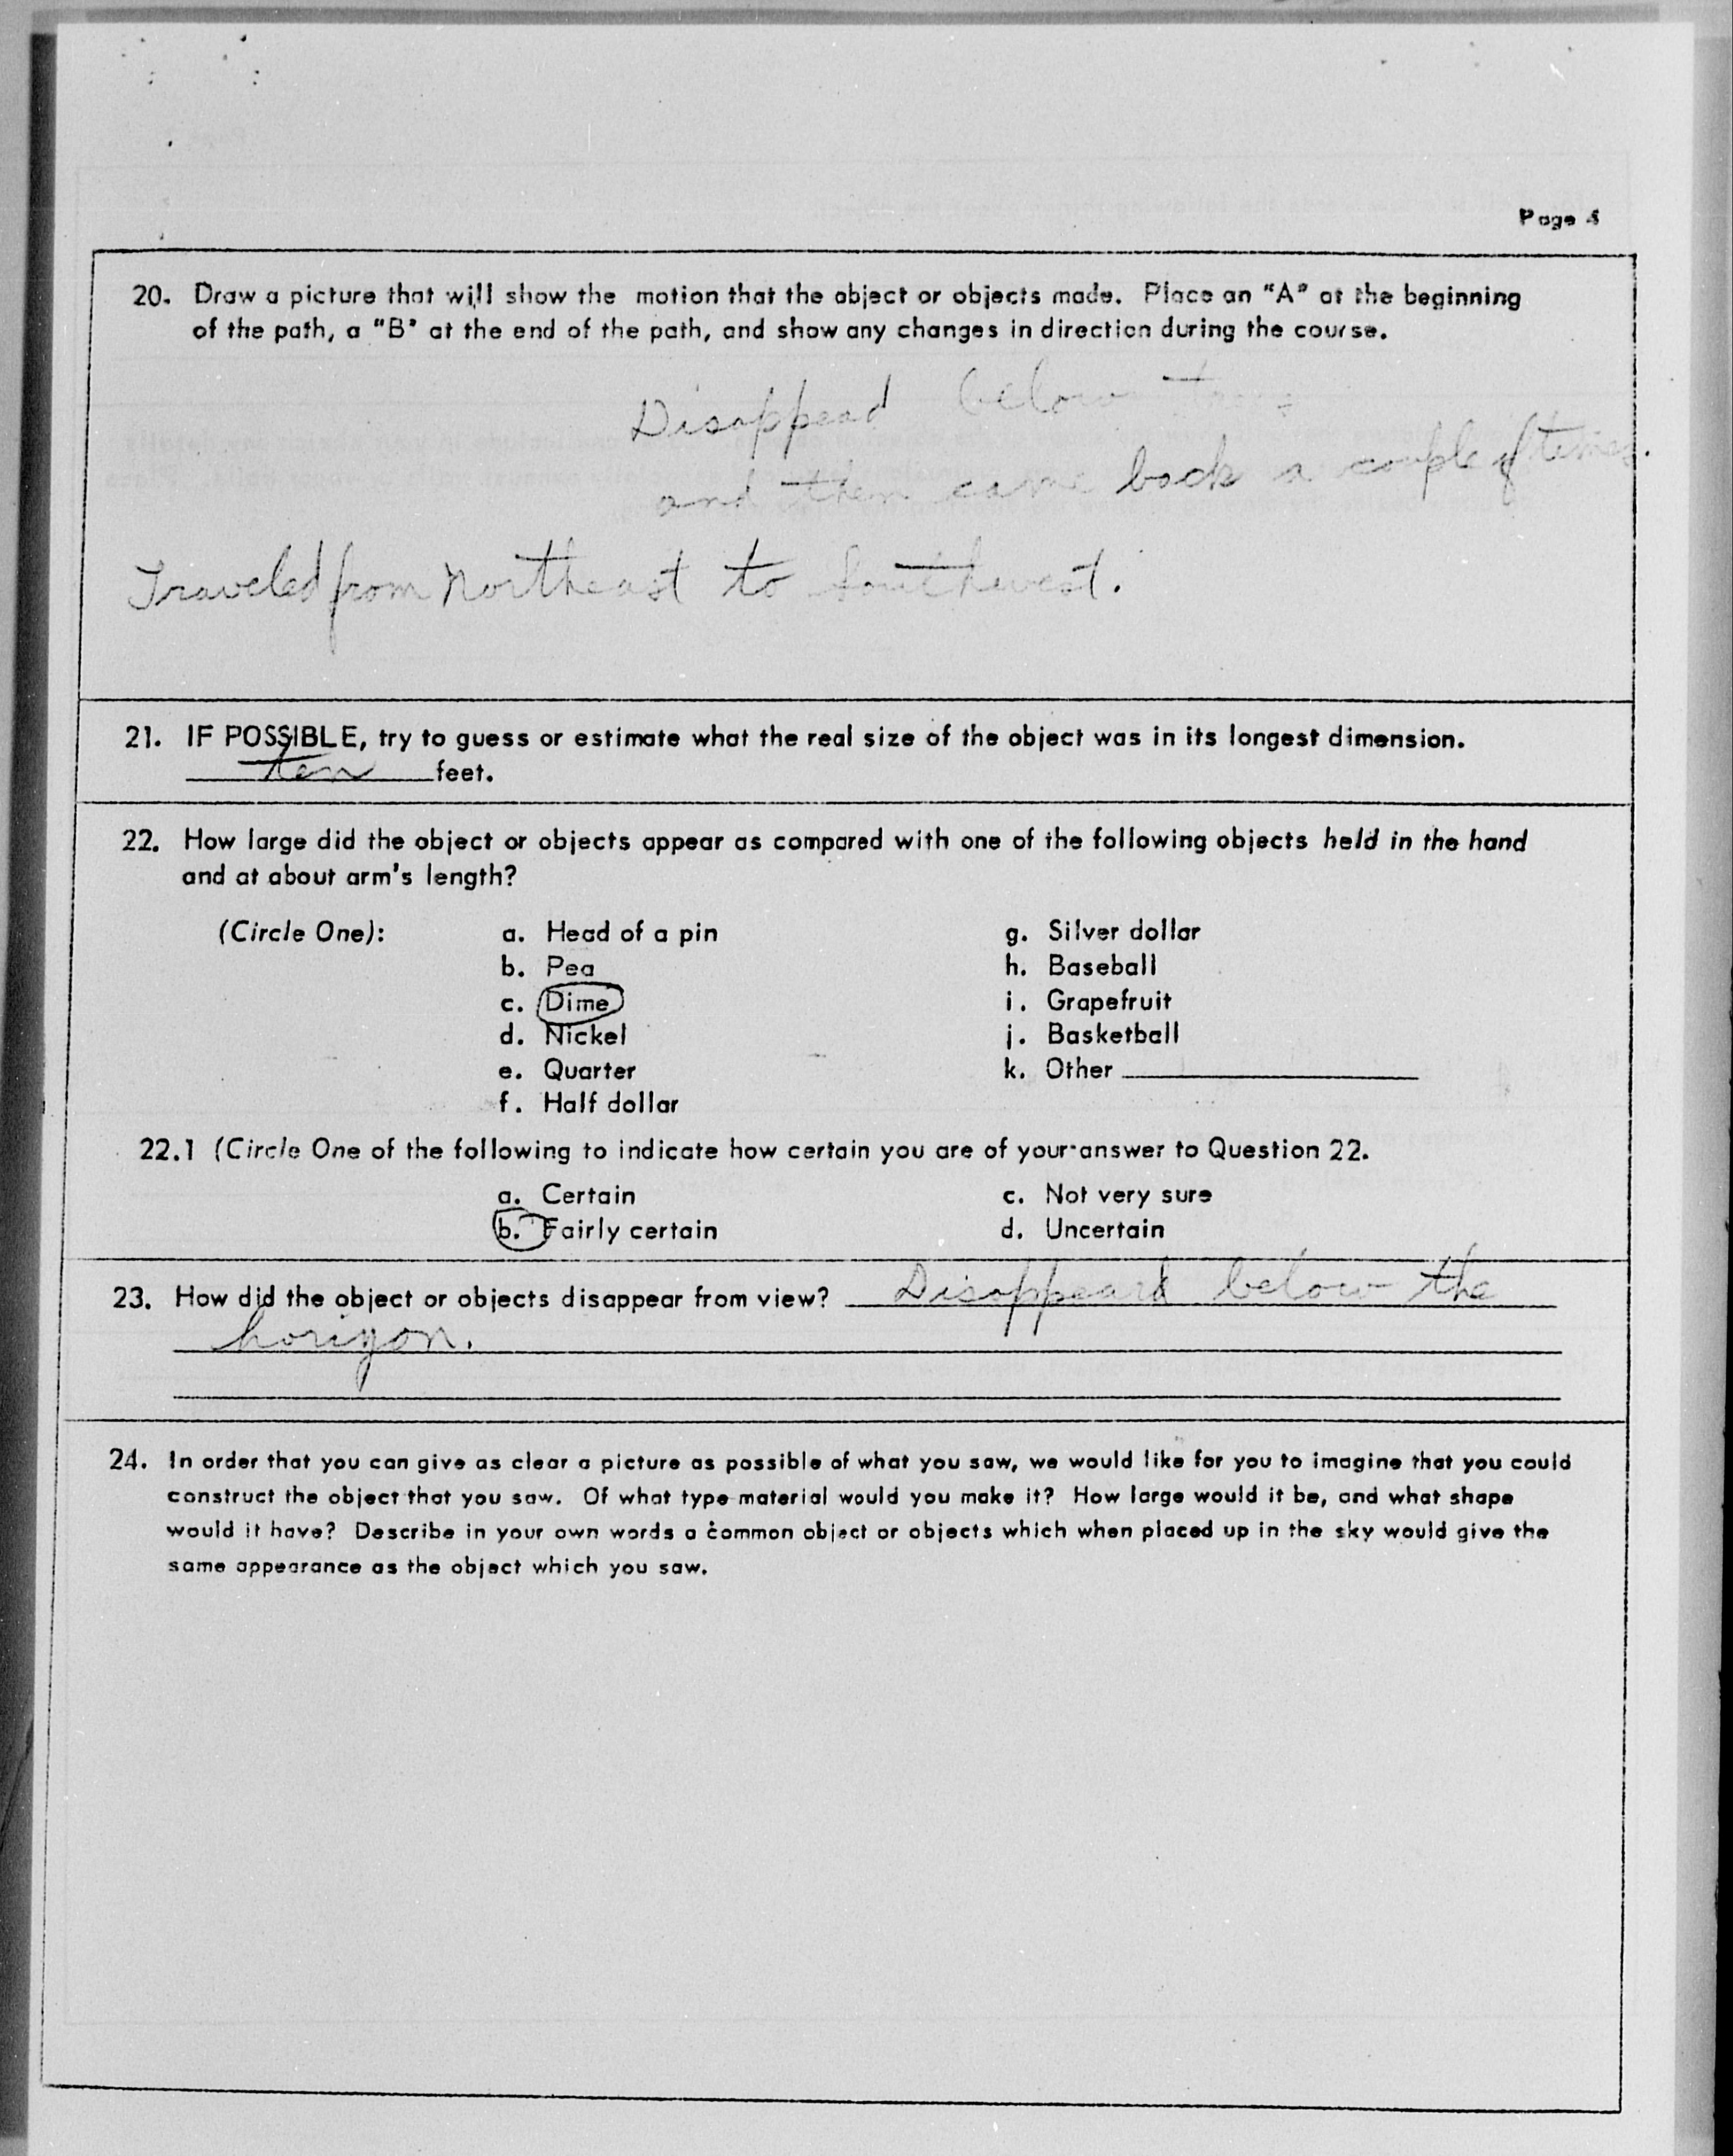 Page 4
20. Draw a picture that will show the motion that the object or objects made. Place an "A" at the beginning
of the path, a "B" at the end of the path, and show any changes in direction during the course.
Disappead below
and then came back a couple of times.
Traveled from Northeast to Southwest.
21. IF POSSIBLE, try to guess or estimate what the real size of the object was in its longest dimension.
ten feet.
22. How large did the object or objects appear as compared with one of the following objects held in the hand
and at about arm's length?
(Circle One): a. Head of a pin g. Silver dollar
b. Pea h. Baseball
c. Dime i. Grapefruit
d. Nickel j. Basketball
e. Quarter k. Other
f. Half dollar
22.1 (Circle One of the following to indicate how certain you are of your answer to Question 22.
a. Certain c. Not very sure
b. Fairly certain d. Uncertain
23. How did the object or objects disappear from view? Disappeard below the
horizon.
24. In order that you can give as clear a picture as possible of what you saw, we would like for you to imagine that you could
construct the object that you saw. Of what type material would you make it? How large would it be, and what shape
would it have? Describe in your own words a common object or objects which when placed up in the sky would give the
same appearance as the object which you saw.